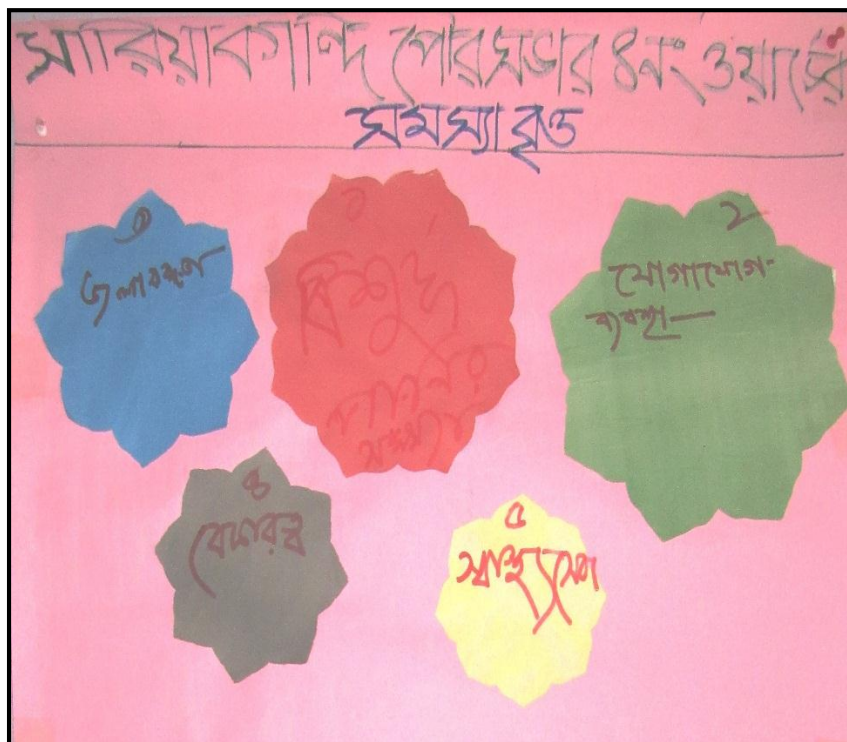 সারিয়াকান্দি পৌরসভার ৪নং ওয়ার্ডের
সমস্যা বৃত্ত
৩
জলাবদ্ধতা
১
বিশুদ্ধ
পানির
সমস্যা
২
যোগাযোগ
ব্যবস্থা
৪
বেকারত্ব
৫
স্বাস্থ্যসেবা